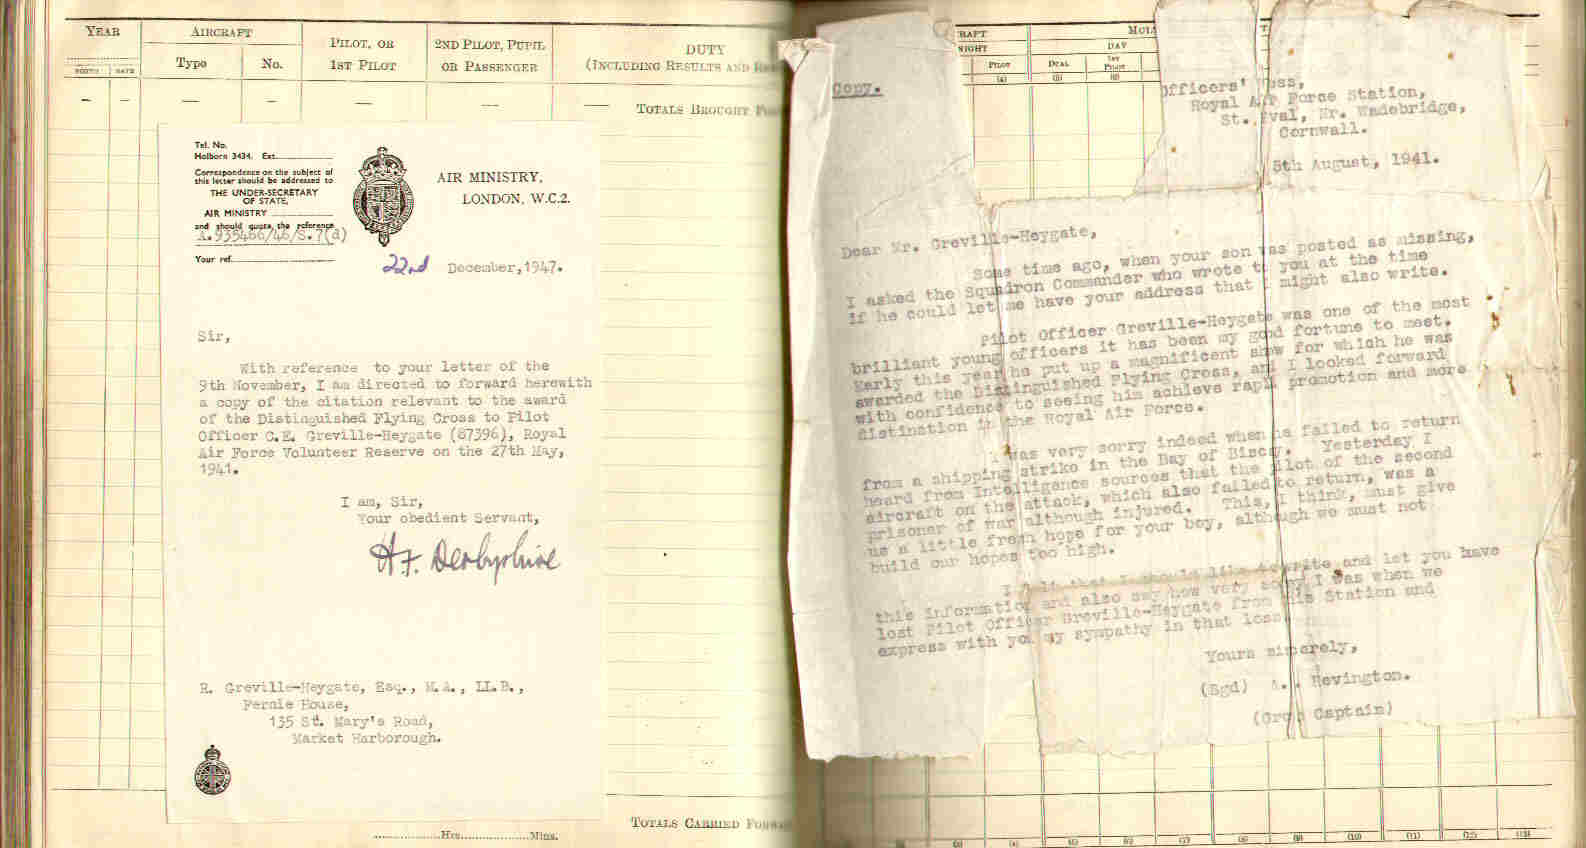 YEAR
AIRCRAFT
PILOT, OR
1ST PILOT
2ND PILOT, PUPIL
OR PASSENGER
DUTY
(INCLUDING RESULTS AND
MONTH
DATE
Type
No.
— — — — — — —
TOTALS BROUGHT
Tel. No.
Holborn 3434. Ext.
Correspondence on the subject of
this letter should be addressed to
THE UNDER-SECRETARY
OF STATE,
AIR MINISTRY
and should quote the reference
A.935466/46/S.7(d)
Your ref.
AIR MINISTRY,
LONDON, W.C.2.
22nd December, 1947.
Sir,
With reference to your letter of the
9th November, I am directed to forward herewith
a copy of the citation relevant to the award
of the Distinguished Flying Cross to Pilot
Officer C.E. Greville-Heygate (87396), Royal
Air Force Volunteer Reserve on the 27th May,
1941.
I am, Sir,
Your obedient Servant,
H F. Derbyshire
R. Greville-Heygate, Esq., M.A., LL.B.,
Fernie House,
135 St. Mary's Road,
Market Harborough.
TOTALS CARRIED
Hrs. Mins.
RAFT
NIGHT
DAY
PILOT
DUAL
1ST
PILOT
(4)
(5)
(6)
Copy.
Officers' Mess,
Royal Air Force Station,
St. Eval, Nr. Wadebridge,
Cornwall.
5th August, 1941.
Dear Mr. Greville-Heygate,
Some time ago, when your son was posted as missing,
I asked the Squadron Commander who wrote to you at the time
if he could let me have your address that I might also write.
Pilot Officer Greville-Heygate was one of the most
brilliant young officers it has been my good fortune to meet.
Early this year he put up a magnificent show for which he was
awarded the Distinguished Flying Cross, and I looked forward
with confidence to seeing him achieve rapid promotion and more
distinction in the Royal Air Force.
I was very sorry indeed when he failed to return
from a shipping strike in the Bay of Biscay. Yesterday I
heard from Intelligence sources that the pilot of the second
aircraft on the attack, which also failed to return, was a
prisoner of war although injured. This, I think, must give
us a little fresh hope for your boy, although we must not
build our hopes too high.
I felt that I should like to write and let you have
this information and also say how very sorry I was when we
lost Pilot Officer Greville-Heygate from this Station and
express with you my sympathy in that loss.
Yours sincerely,
(Sgd) A. Revington.
(Group Captain)
(10) (11) (12) (13)